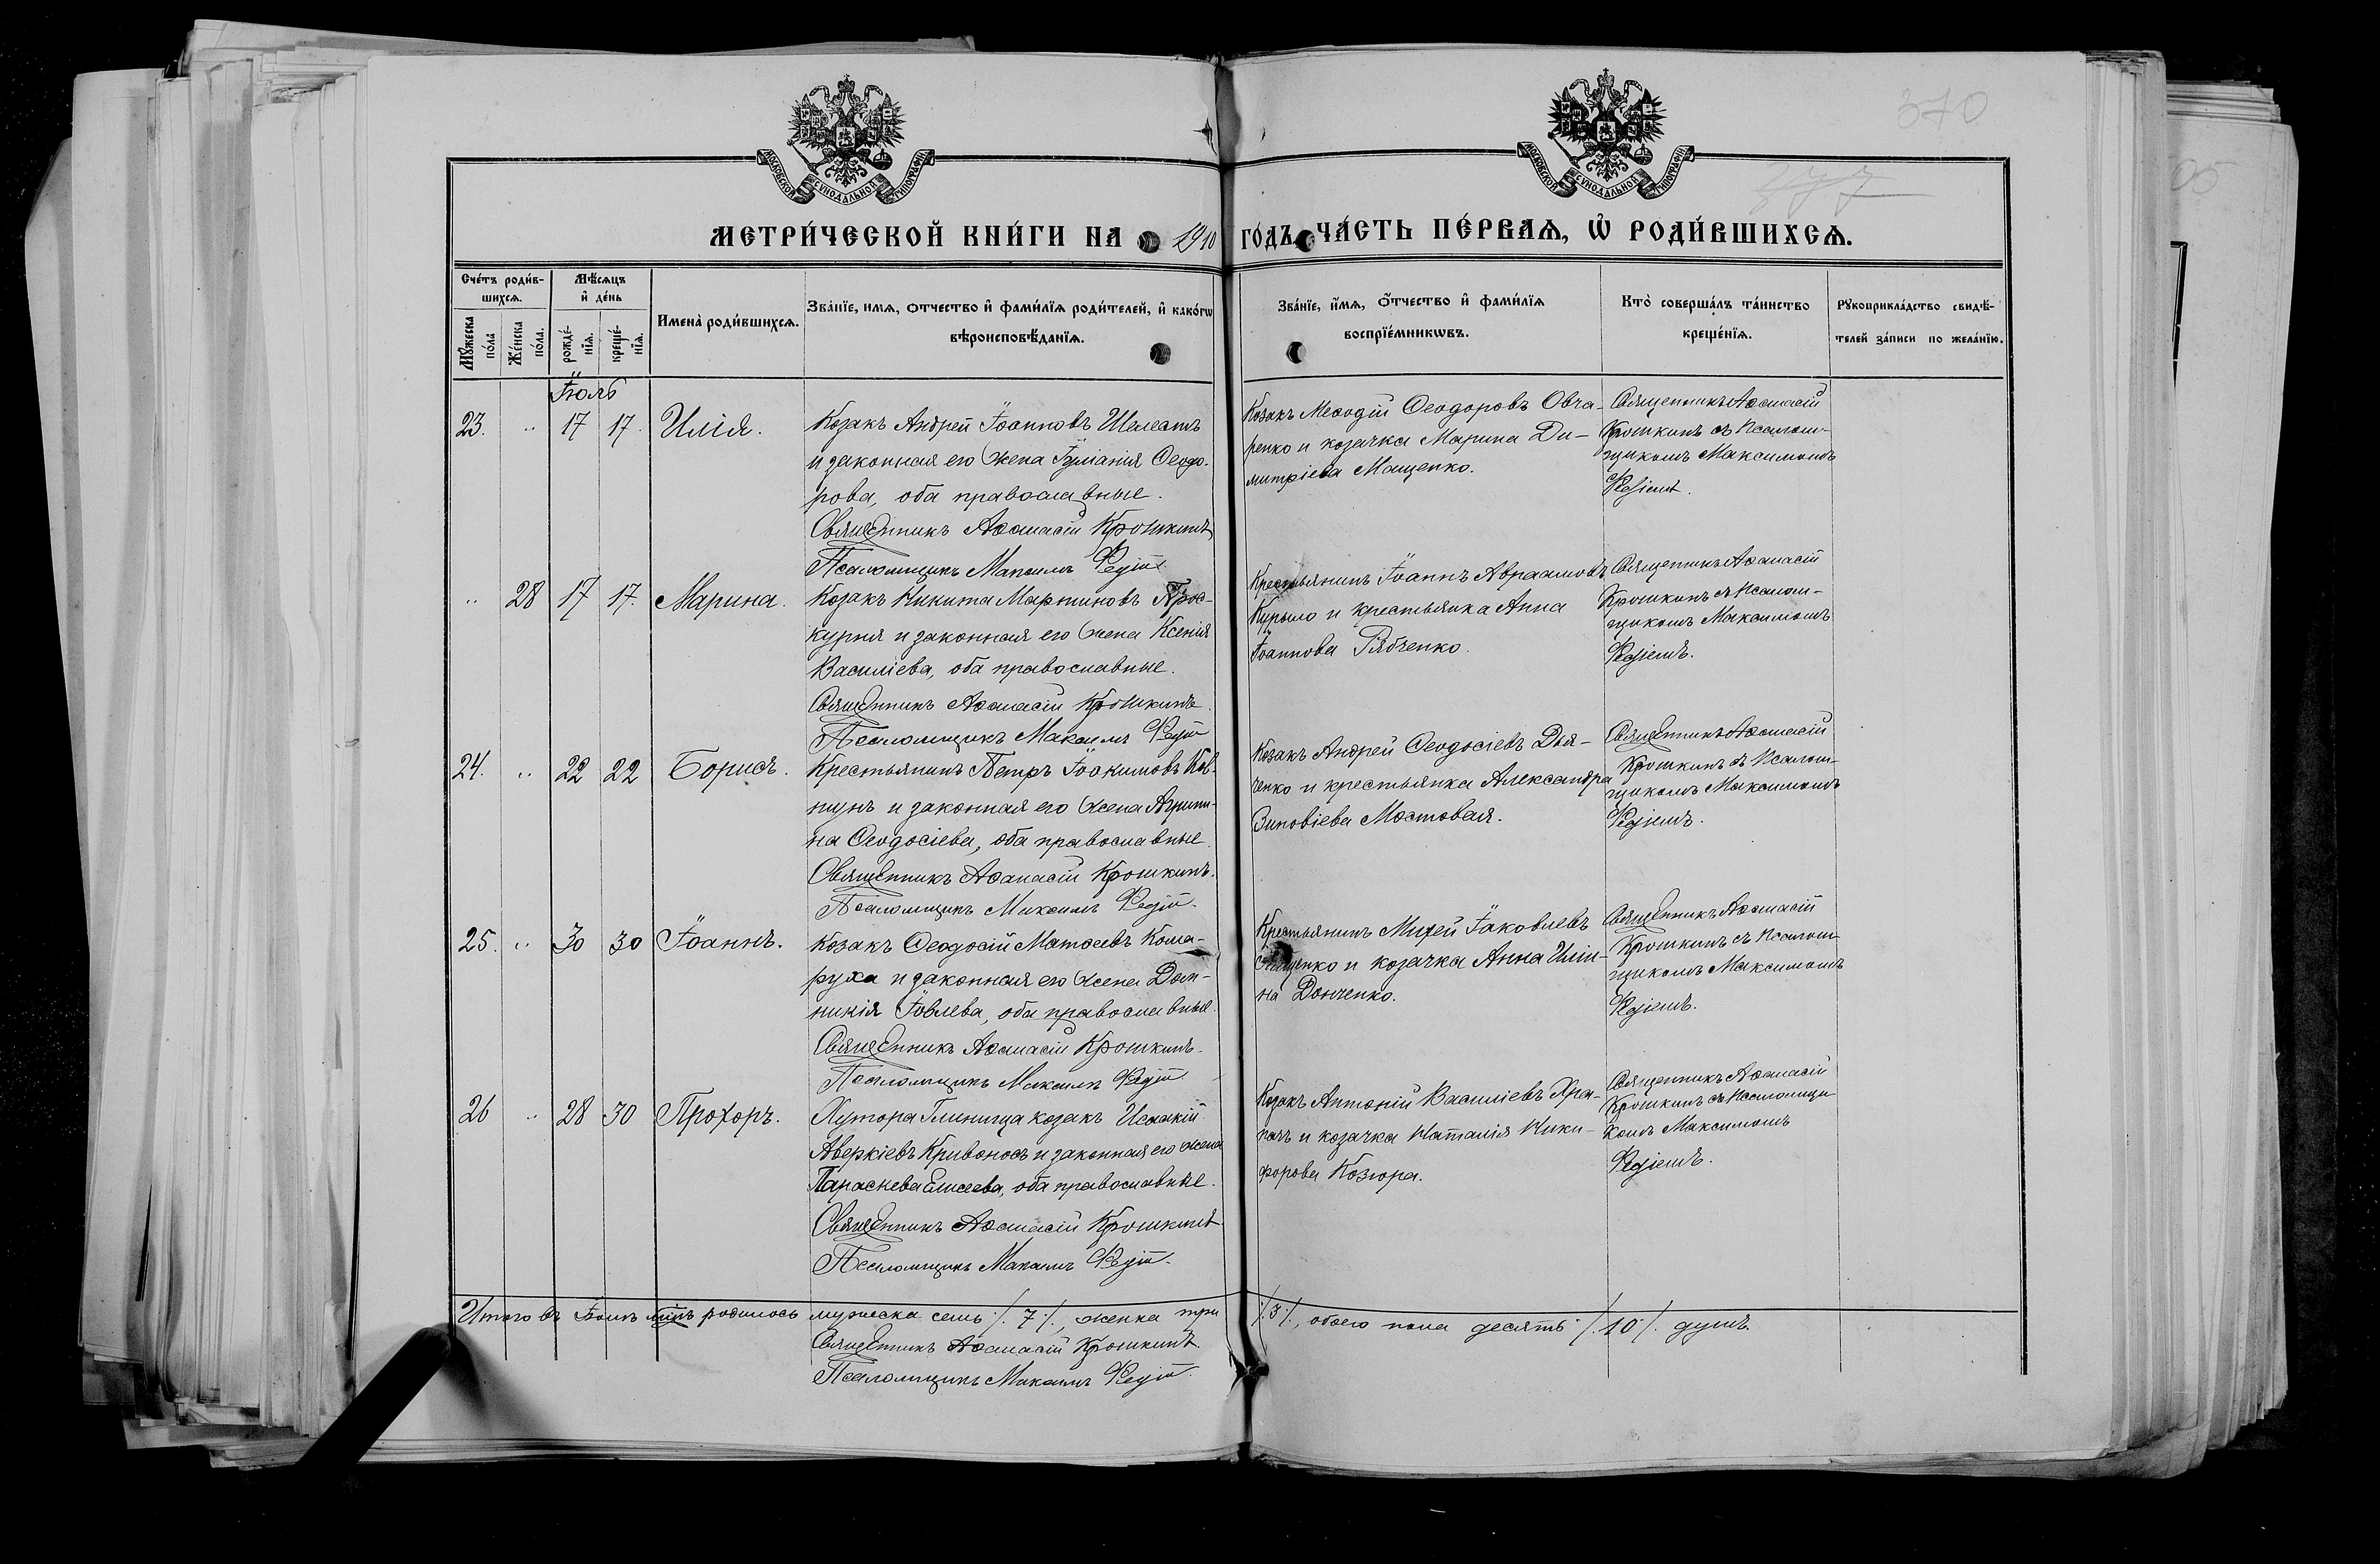 370
277
МОСКОВСКОЙ СУНОДАЛЬНОЙ ТИПОГРАФІИ
МОСКОВСКОЙ СУНОДАЛЬНОЙ ТИПОГРАФІИ
МЕТРИ́ЧЕСКОЙ КНИ́ГИ НА 1910 ГО́ДЪ, ЧА́СТЬ ПЕ́РВАѦ, Ѡ РОДИ́ВШИХСѦ.
Сче́тъ роди́в-
шихсѧ.
Мѣ́сѧцъ
и де́нь
Мꙋ́жеска
по́ла
Же́нска
по́ла.
рожде́-
нїѧ.
креще́-
нїѧ.
Имена̀ роди́вшихсѧ.
Зва́нїе, имѧ, отчество и фами́лїѧ роди́телей, и како́гѡ
вѣроисповѣ́данїѧ.
Зва́нїе, и́мѧ, о́тчество и фами́лїѧ
воспрїе́мникѡвъ.
Кто̀ соверша́лъ та́инство
креще́нїѧ.
Рꙋкоприкла́дство свидѣ́-
телей за́писи по жела́нїю.
Іюль
23. " 17 17. Илія.
Козакъ Андрей Іоанновъ Шелестъ
и законная его жена Іуліанія Ѳеодо-
рова, оба православные.
Священникъ Аѳанасій Крошкинъ
Псаломщикъ Максимъ Редій.
Козакъ Меѳодій Ѳеодоровъ Овча-
ренко и козачка Марина Ди-
митріева Мащенко.
Священникъ Аѳанасій
Крошкинъ съ псалом-
щикомъ Максимомъ
Редіемъ.
" 28 17 17. Марина.
Козакъ Никита Мартиновъ Прос-
курня и законная его жена Ксенія
Василіева, оба православные.
Священникъ Аѳанасій Крошкинъ.
Псаломщикъ Максимъ Редій
Крестьянинъ Іоаннъ Авраамовъ
Курыло и крестьянка Анна
Іоаннова Рябченко.
Священникъ Аѳанасій
Крошкинъ съ псалом-
щикомъ Максимомъ
Редіемъ.
24. " 22 22 Борисъ.
Крестьянинъ Петръ Іоакимовъ Ков-
пунъ и законная его жена Агрипи-
на Ѳеодосіева, оба православные.
Священникъ Аѳанасій Крошкинъ.
Псаломщикъ Максимъ Редій.
Козакъ Андрей Ѳеодосіевъ Дья-
ченко и крестьянка Александра
Зиновіева Мостовая.
Священникъ Аѳанасій
Крошкинъ съ псалом-
щикомъ Максимомъ
Редіемъ.
25. " 30 30 Іоаннъ.
Козакъ Ѳеодосій Матѳеевъ Кома-
руха и законная его жена Дом-
никія Іовлева, оба православные.
Священникъ Аѳанасій Крошкинъ.
Псаломщикъ Максимъ Редій.
Крестьянинъ Михей Іаковлевъ
и козачка Анна Иліи-
на Донченко.
Священникъ Аѳанасій
Крошкинъ съ псалом-
щикомъ Максимомъ
Редіемъ.
26 " 28 30 Прохоръ.
Хутора Глиница козакъ Исаакій
Аверкіевъ Кривоносъ и законная его жена
Параскева Елисеева, оба православные.
Священникъ Аѳанасій Крошкинъ
Псаломщикъ Максимъ Редій.
Козакъ Антоній Василіевъ Хра-
пачъ и козачка Наталія Ники-
форова Козюра.
Священникъ Аѳанасій
Крошкинъ съ псаломщи-
комъ Максимомъ
Редіемъ.
Итого въ Іюлѣ м-цѣ родилось мужеска семь /.7./, женска три /.3./, обоего пола десять /.10./ душъ.
Священникъ Аѳанасій Крошкинъ.
Псаломщикъ Максимъ Редій.